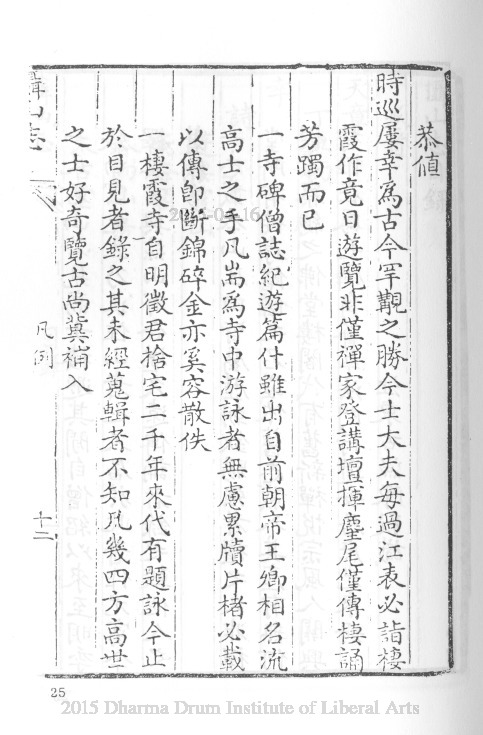 恭値
時巡屢幸爲古今罕覯之勝今士大夫每過江表必詣棲
霞作竟日遊覽非僅禪家登講壇揮麈尾僅傳棲誦
芳躅而已
一寺碑僧誌紀遊篇什雖出自前朝帝王卿相名流
高士之手凡耑爲寺中游詠者無慮累牘片楮必載
以傳卽斷錦碎金亦奚容散佚
一棲霞寺自明徵君捨宅二千年來代有題詠今止
於目見者錄之其未經蒐輯者不知凡幾四方高世
之士好奇覽古尚冀補入
山志
凡例
十二
25
2015 Dharma Drum Institute of Liberal Arts